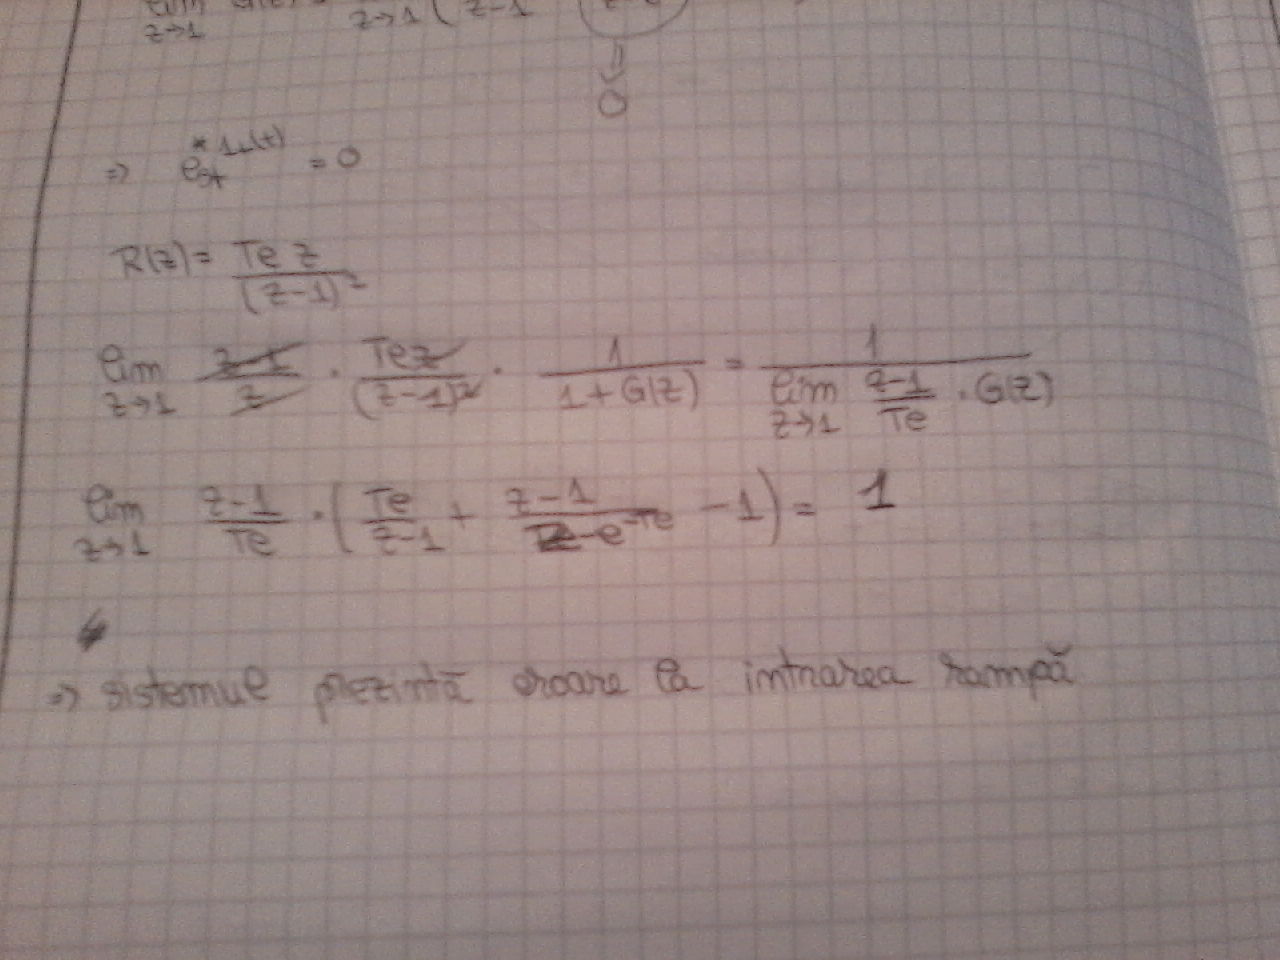 z→1 z→1 ( z-1
0
=> e*st 1u(t) = 0
R(z) = Te z / (z-1)²
lim z→1 z-1/z · Te z/(z-1)² · 1/(1+G(z)) = 1/(lim z→1 z-1/Te · G(z))
lim z→1 z-1/Te · ( Te/z-1 + z-1/z-e^-Te - 1 ) = 1
=> sistemul prezintă eroare la intrarea rampă